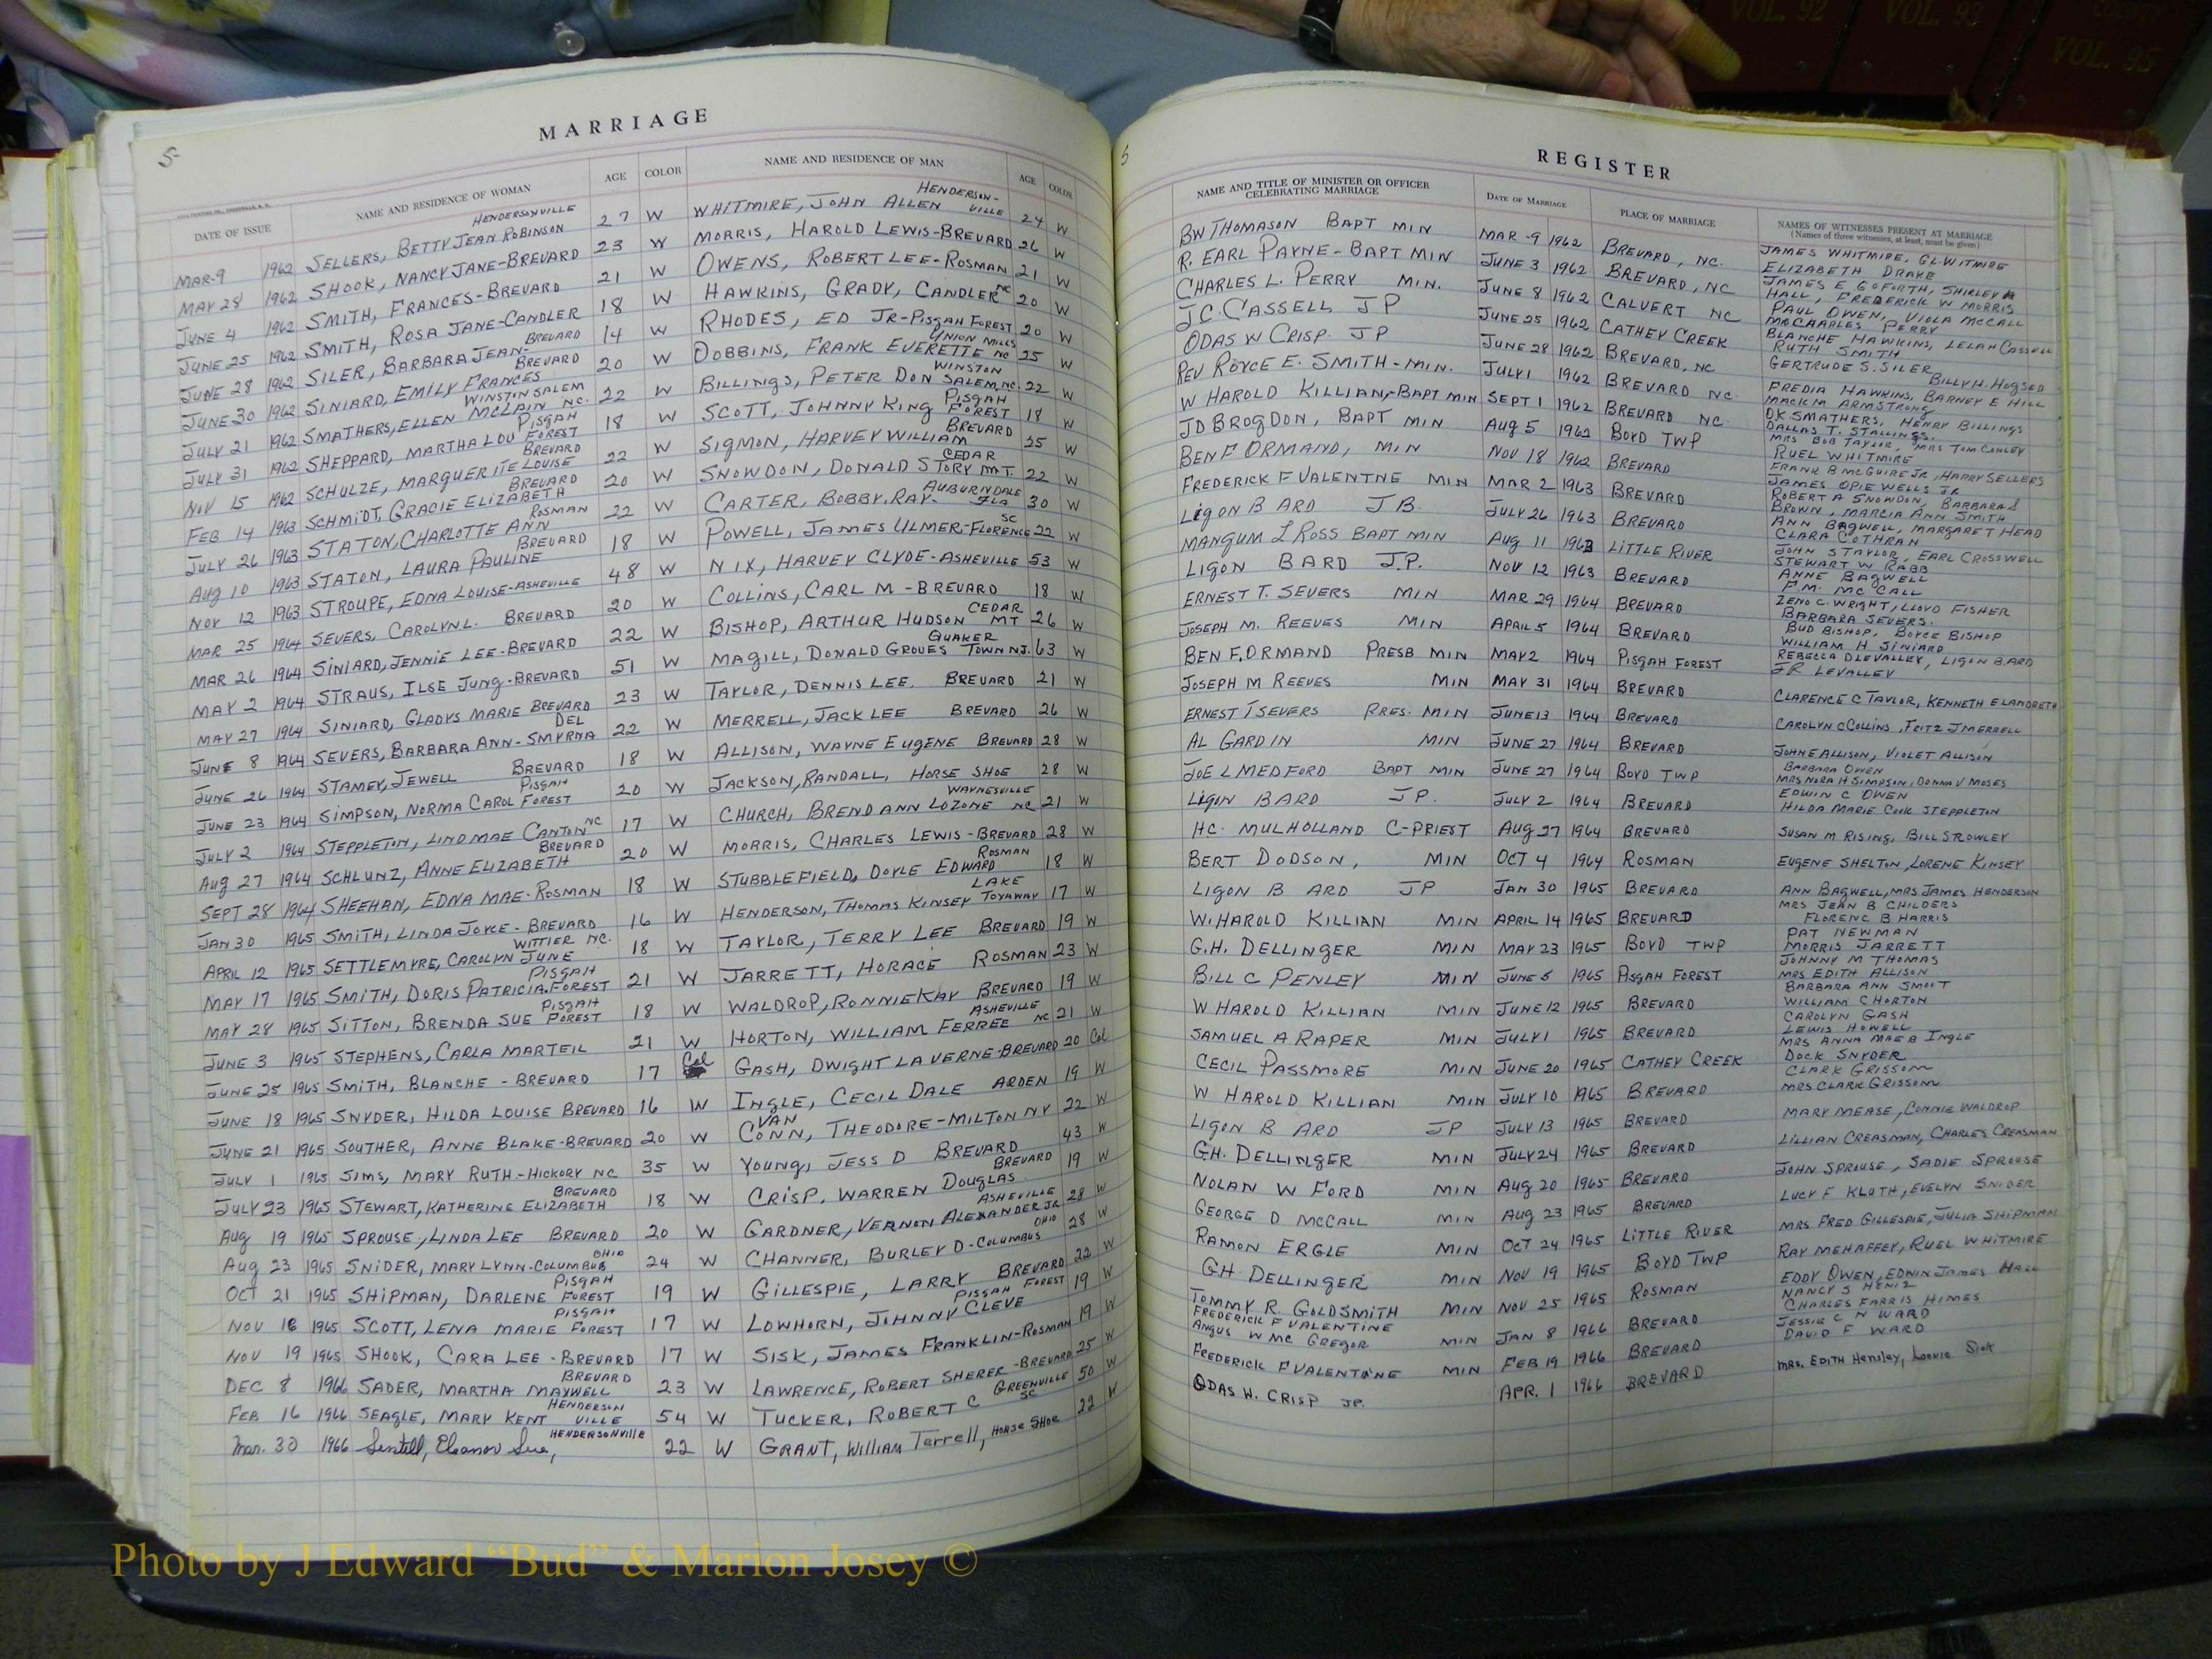 VOL. 92 VOL. 93 VOL. 95
MARRIAGE
5
DATE OF ISSUE NAME AND RESIDENCE OF WOMAN AGE COLOR NAME AND RESIDENCE OF MAN AGE COLOR
MAR-9 1962 SELLERS, BETTY JEAN ROBINSON HENDERSONVILLE 27 W WHITMIRE, JOHN ALLEN HENDERSON-VILLE 24 W
MAY 28 1962 SHOOK, NANCY JANE-BREVARD 23 W MORRIS, HAROLD LEWIS-BREVARD 26 W
JUNE 4 1962 SMITH, FRANCES-BREVARD 21 W OWENS, ROBERT LEE-ROSMAN 21 W
JUNE 25 1962 SMITH, ROSA JANE-CANDLER 18 W HAWKINS, GRADY, CANDLER NC 20 W
JUNE 28 1962 SILER, BARBARA JEAN- BREVARD 14 W RHODES, ED JR-PISGAH FOREST 20 W
JUNE 30 1962 SINIARD, EMILY FRANCES BREVARD 20 W DOBBINS, FRANK EVERETTE UNION MILLS NC 25 W
JULY 21 1962 SMATHERS, ELLEN MCLAIN WINSTON SALEM NC. 22 W BILLINGS, PETER DON WINSTON SALEM, NC. 22 W
JULY 31 1962 SHEPPARD, MARTHA LOU PISGAH FOREST 18 W SCOTT, JOHNNY KING PISGAH FOREST 18 W
NOV 15 1962 SCHULZE, MARGUERITE LOUISE BREVARD 22 W SIGMON, HARVEY WILLIAM BREVARD 25 W
FEB 14 1963 SCHMIDT, GRACIE ELIZABETH BREVARD 20 W SNOWDON, DONALD STORY CEDAR MT. 22 W
JULY 26 1963 STATON, CHARLOTTE ANN ROSMAN 22 W CARTER, BOBBY, RAY- AUBURNDALE FLA 30 W
AUG 10 1963 STATON, LAURA PAULINE BREVARD 18 W POWELL, JAMES ULMER-FLORENCE SC 22 W
NOV 12 1963 STROUPE, EDNA LOUISE-ASHEVILLE 48 W NIX, HARVEY CLYDE-ASHEVILLE 53 W
MAR 25 1964 SEVERS, CAROLYN L. BREVARD 20 W COLLINS, CARL M - BREVARD 18 W
MAR 26 1964 SINIARD, JENNIE LEE-BREVARD 22 W BISHOP, ARTHUR HUDSON CEDAR MT 26 W
MAY 2 1964 STRAUS, ILSE JUNG-BREVARD 51 W MAGILL, DONALD GROVES QUAKER TOWN NJ. 63 W
MAY 27 1964 SINIARD, GLADYS MARIE BREVARD 23 W TAYLOR, DENNIS LEE. BREVARD 21 W
JUNE 8 1964 SEVERS, BARBARA ANN-SMYRNA DEL 22 W MERRELL, JACK LEE BREVARD 26 W
JUNE 26 1964 STAMEY, JEWELL BREVARD 18 W ALLISON, WAYNE EUGENE BREVARD 28 W
JUNE 23 1964 SIMPSON, NORMA CAROL PISGAH FOREST 20 W JACKSON, RANDALL, HORSE SHOE 28 W
JULY 2 1964 STEPPLETON, LIND MAE CANTON NC 17 W CHURCH, BREND ANN LOZONE WAYNESVILLE NC 21 W
AUG 27 1964 SCHLUNZ, ANNE ELIZABETH BREVARD 20 W MORRIS, CHARLES LEWIS-BREVARD 28 W
SEPT 28 1964 SHEEHAN, EDNA MAE-ROSMAN 18 W STUBBLEFIELD, DOYLE EDWARD ROSMAN 18 W
JAN 30 1965 SMITH, LINDA JOYCE-BREVARD 16 W HENDERSON, THOMAS KINSEY LAKE TOXAWAY 17 W
APRIL 12 1965 SETTLEMYRE, CAROLYN JUNE WITTIER NC. 18 W TAYLOR, TERRY LEE BREVARD 19 W
MAY 17 1965 SMITH, DORIS PATRICIA PISGAH FOREST 21 W JARRETT, HORACE ROSMAN 23 W
MAY 28 1965 SITTON, BRENDA SUE PISGAH FOREST 18 W WALDROP, RONNIE KAY BREVARD 19 W
JUNE 3 1965 STEPHENS, CARLA MARTEIL 21 W HORTON, WILLIAM FERREE ASHEVILLE NC 21 W
JUNE 25 1965 SMITH, BLANCHE - BREVARD 17 Col GASH, DWIGHT LAVERNE-BREVARD 20 Col
JUNE 18 1965 SNYDER, HILDA LOUISE BREVARD 16 W INGLE, CECIL DALE ARDEN 19 W
JUNE 21 1965 SOUTHER, ANNE BLAKE-BREVARD 20 W VAN CONN, THEODORE-MILTON NY 22 W
JULY 1 1965 SIMS, MARY RUTH-HICKORY NC 35 W YOUNG, JESS D BREVARD 43 W
JULY 23 1965 STEWART, KATHERINE ELIZABETH BREVARD 18 W CRISP, WARREN DOUGLAS BREVARD 19 W
AUG 19 1965 SPROUSE, LINDA LEE BREVARD 20 W GARDNER, VERNON ALEXANDER JR ASHEVILLE 28 W
AUG 23 1965 SNIDER, MARY LYNN-COLUMBUS OHIO 24 W CHANNER, BURLEY D-COLUMBUS OHIO 28 W
OCT 21 1965 SHIPMAN, DARLENE PISGAH FOREST 19 W GILLESPIE, LARRY BREVARD 22 W
NOV 18 1965 SCOTT, LENA MARIE PISGAH FOREST 17 W LOWHORN, JOHNNY CLEVE PISGAH FOREST 19 W
NOV 19 1965 SHOOK, CARA LEE-BREVARD 17 W SISK, JAMES FRANKLIN-ROSMAN 19 W
DEC 8 1966 SADER, MARTHA MAXWELL BREVARD 23 W LAWRENCE, ROBERT SHERER-BREVARD 25 W
FEB 16 1966 SEAGLE, MARY KENT HENDERSON VILLE 54 W TUCKER, ROBERT C GREENVILLE SC 50 W
Mar. 30 1966 Sentell, Eleanor Sue, HENDERSONVILLE 22 W GRANT, William Terrell, HORSE SHOE 22 W
REGISTER
5
NAME AND TITLE OF MINISTER OR OFFICER CELEBRATING MARRIAGE DATE OF MARRIAGE PLACE OF MARRIAGE NAMES OF WITNESSES PRESENT AT MARRIAGE
(Names of three witnesses, at least, must be given)
BW THOMASON BAPT MIN MAR-9 1962 BREVARD, NC. JAMES WHITMIRE, GL WITMIRE ELIZABETH DRAKE
R. EARL PAYNE-BAPT MIN JUNE 3 1962 BREVARD, NC JAMES E GOFORTH, SHIRLEY A HALL, FREDERICK W MORRIS
CHARLES L. PERRY MIN. JUNE 8 1962 CALVERT NC PAUL OWEN, VIOLA MCCALL MRCHARLES PERRY
J.C. CASSELL JP JUNE 25 1962 CATHEY CREEK BLANCHE HAWKINS, LELAH CASSELL RUTH SMITH
ODAS W CRISP. JP JUNE 28 1962 BREVARD, NC GERTRUDE S. SILER BILLY H. HOGSED
REV ROYCE E. SMITH-MIN. JULY 1 1962 BREVARD NC. FREDIA HAWKINS, BARNEY E HILL MACK M ARMSTRONG
W HAROLD KILLIAN,-BAPT MIN SEPT 1 1962 BREVARD NC. OK SMATHERS, HENRY BILLINGS DALLAS T. STALLINGS.
JD BROGDON, BAPT MIN AUG 5 1962 BOYD TWP MRS BOB TAYLOR, MRS TOM CONLEY RUEL WHITMIRE
BEN F ORMAND, MIN NOV 18 1962 BREVARD FRANK B MCGUIRE JR, HARRY SELLERS JAMES OPIE WELLS JR
FREDERICK F VALENTNE MIN MAR 2 1963 BREVARD ROBERT A SNOWDON, BARBARA J BROWN, MARCIA ANN SMITH
LIGON B ARD J B. JULY 26 1963 BREVARD ANN BAGWELL, MARGARET HEAD CLARA COTHRAN
MANGUM L ROSS BAPT MIN AUG 11 1963 LITTLE RIVER JOHN S TAYLOR, EARL CROSSWELL STEWART W RABB
LIGON BARD J.P. NOV 12 1963 BREVARD ANNE BAGWELL P.M. MCCALL
ERNEST T. SEVERS MIN MAR 29 1964 BREVARD ZENO C. WRIGHT, LLOYD FISHER BARBARA SEVERS.
JOSEPH M. REEVES MIN APRIL 5 1964 BREVARD BUD BISHOP, BOYCE BISHOP WILLIAM H SINIARD
BEN F. ORMAND PRESB MIN MAY 2 1964 PISGAH FOREST REBECCA D LEVALLEY, LIGON B. ARD JR LEVALLEY
JOSEPH M REEVES MIN MAY 31 1964 BREVARD CLARENCE C TAYLOR, KENNETH E LANDRETH
ERNEST T SEVERS PRES. MIN JUNE 13 1964 BREVARD CAROLYN C COLLINS, FRITZ J MERRELL
AL GARDIN MIN JUNE 27 1964 BREVARD JOHN E ALLISON, VIOLET ALLISON BARBARA OWEN
JOE L MEDFORD BAPT MIN JUNE 27 1964 BOYD TWP MRS NORA H SIMPSON, DONNA V MOSES EDWIN C OWEN
LIGON B ARD JP. JULY 2 1964 BREVARD HILDA MARIE COOK STEPPLETON
HC. MULHOLLAND C-PRIEST AUG 27 1964 BREVARD SUSAN M RISING, BILL STROWLEY
BERT DODSON, MIN OCT 4 1964 ROSMAN EUGENE SHELTON, LORENE KINSEY
LIGON B ARD JP JAN 30 1965 BREVARD ANN BAGWELL, MRS JAMES HENDERSON
W. HAROLD KILLIAN MIN APRIL 14 1965 BREVARD MRS JEAN B CHILDERS FLORENC B HARRIS
G.H. DELLINGER MIN MAY 23 1965 BOYD TWP PAT NEWMAN MORRIS JARRETT
BILL C PENLEY MIN JUNE 5 1965 PISGAH FOREST JOHNNY M THOMAS MRS EDITH ALLISON
W HAROLD KILLIAN MIN JUNE 12 1965 BREVARD BARBARA ANN SMOOT WILLIAM C HORTON
SAMUEL A RAPER MIN JULY 1 1965 BREVARD CAROLYN GASH LEWIS HOWELL
CECIL PASSMORE MIN JUNE 20 1965 CATHEY CREEK MRS ANNA MAE B INGLE DOCK SNYDER
W HAROLD KILLIAN MIN JULY 10 1965 BREVARD CLARK GRISSOM MRS CLARK GRISSOM
LIGON B ARD JP JULY 13 1965 BREVARD MARY MEASE, CONNIE WALDROP
GH. DELLINGER MIN JULY 24 1965 BREVARD LILLIAN CREASMAN, CHARLES CREASMAN
NOLAN W FORD MIN AUG 20 1965 BREVARD JOHN SPROUSE, SADIE SPROUSE
GEORGE D MCCALL MIN AUG 23 1965 BREVARD LUCY F KLUTH, EVELYN SNIDER
RAMON ERGLE MIN OCT 24 1965 LITTLE RIVER MRS FRED GILLESPIE, JULIA SHIPMAN
GH DELLINGER MIN NOV 19 1965 BOYD TWP RAY MEHAFFEY, RUEL WHITMIRE
TOMMY R. GOLDSMITH MIN NOV 25 1965 ROSMAN EDDY OWEN, EDWIN JAMES HALL
FREDERICK F VALENTINE ANGUS W MC GREGOR MIN JAN 8 1966 BREVARD NANCY S CHARLES FARRIS HIMES
FREDERICK F VALENTINE MIN FEB 19 1966 BREVARD JESSIE C N WARD DAVID F WARD
ODAS W. CRISP JP. APR. 1 1966 BREVARD MRS. EDITH Hensley, Loovie Sisk
Photo by J Edward “Bud” & Marion Josey ©